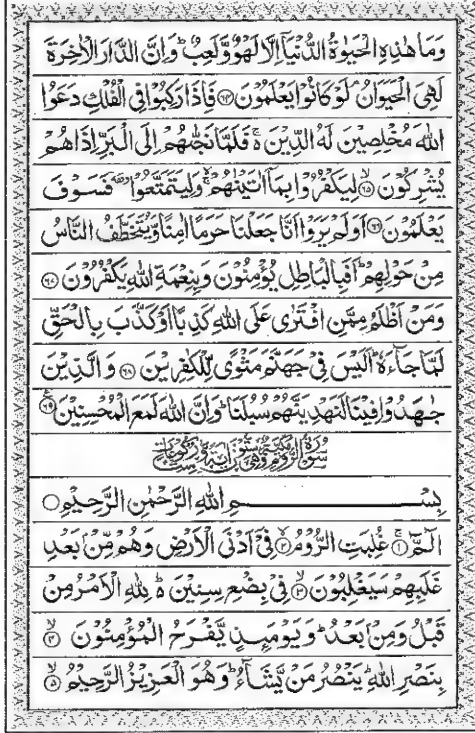 وَمَا هٰذِهِ الْحَيٰوةُ الدُّنْيَآ اِلَّا لَهْوٌ وَّلَعِبٌ ؕ وَاِنَّ الدَّارَ الْاٰخِرَةَ
لَهِيَ الْحَيَوَانُ ۘ لَوْ كَانُوْا يَعْلَمُوْنَ ﴿۶۴﴾ فَاِذَا رَكِبُوْا فِي الْفُلْكِ دَعَوُا
اللّٰهَ مُخْلِصِيْنَ لَهُ الدِّيْنَ ۚ۬ فَلَمَّا نَجّٰىهُمْ اِلَى الْبَرِّ اِذَا هُمْ
يُشْرِكُوْنَ ﴿۶۵﴾ۙ لِيَكْفُرُوْا بِمَآ اٰتَيْنٰهُمْ ۙۚ وَلِيَتَمَتَّعُوْا ۥ فَسَوْفَ
يَعْلَمُوْنَ ﴿۶۶﴾ اَوَلَمْ يَرَوْا اَنَّا جَعَلْنَا حَرَمًا اٰمِنًا وَّيُتَخَطَّفُ النَّاسُ
مِنْ حَوْلِهِمْ ؕ اَفَبِالْبَاطِلِ يُؤْمِنُوْنَ وَبِنِعْمَةِ اللّٰهِ يَكْفُرُوْنَ ﴿۶۷﴾
وَمَنْ اَظْلَمُ مِمَّنِ افْتَرٰى عَلَى اللّٰهِ كَذِبًا اَوْ كَذَّبَ بِالْحَقِّ
لَمَّا جَآءَهٗ ؕ اَلَيْسَ فِيْ جَهَنَّمَ مَثْوًى لِّلْكٰفِرِيْنَ ﴿۶۸﴾ وَالَّذِيْنَ
جٰهَدُوْا فِيْنَا لَنَهْدِيَنَّهُمْ سُبُلَنَا ؕ وَاِنَّ اللّٰهَ لَمَعَ الْمُحْسِنِيْنَ ﴿۶۹﴾
سُوْرَةُ الرُّوْمِ مَكِّيَّةٌ وَّهِيَ سِتُّوْنَ اٰيَةً وَّسِتُّ رُكُوْعَاتٍ
بِسْمِ اللّٰهِ الرَّحْمٰنِ الرَّحِيْمِ ○
الٓمّٓ ﴿۱﴾ۚ غُلِبَتِ الرُّوْمُ ﴿۲﴾ۙ فِيْٓ اَدْنَى الْاَرْضِ وَهُمْ مِّنْۢ بَعْدِ
غَلَبِهِمْ سَيَغْلِبُوْنَ ﴿۳﴾ۙ فِيْ بِضْعِ سِنِيْنَ ؕ۬ لِلّٰهِ الْاَمْرُ مِنْ
قَبْلُ وَمِنْۢ بَعْدُ ؕ وَيَوْمَئِذٍ يَّفْرَحُ الْمُؤْمِنُوْنَ ﴿۴﴾ۙ
بِنَصْرِ اللّٰهِ ؕ يَنْصُرُ مَنْ يَّشَآءُ ؕ وَهُوَ الْعَزِيْزُ الرَّحِيْمُ ﴿۵﴾ۙ